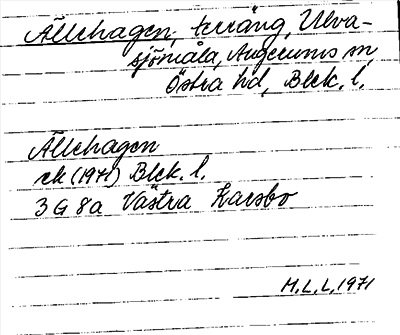 Ällehagen, terräng, Ulva-
sjömåla, Augerums sn,
Östra hd, Blek. l.
Ällehagen
ek (1971) Blek. l.
3 G 8a Västra Karsbo
M.L.L. 1971